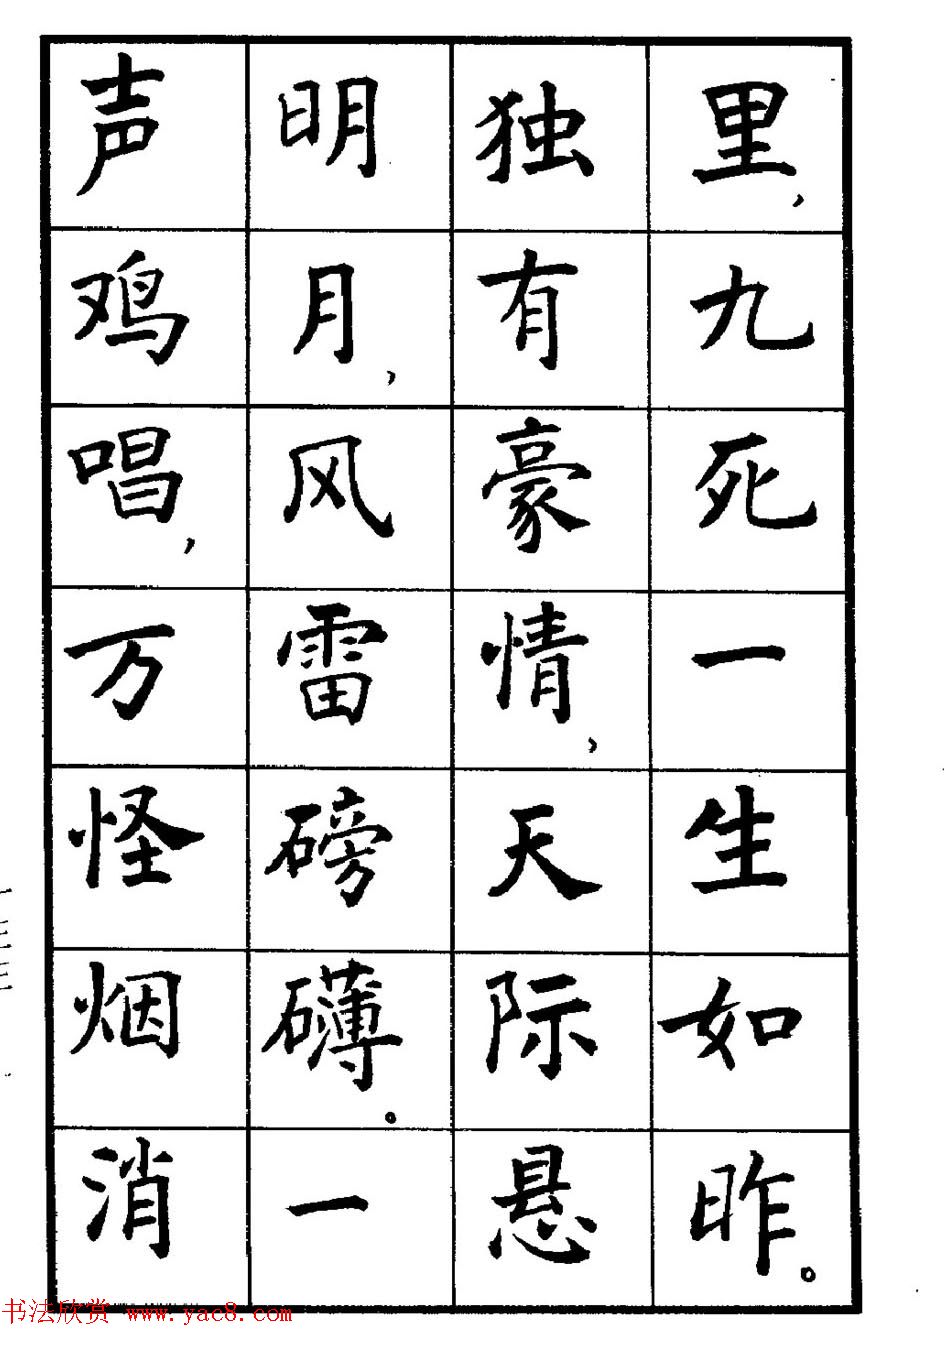 里，九死一生如昨。
独有豪情，天际悬
明月，风雷磅礴。一
声鸡唱，万怪烟消
一三三
书法欣赏 www.yac8.com